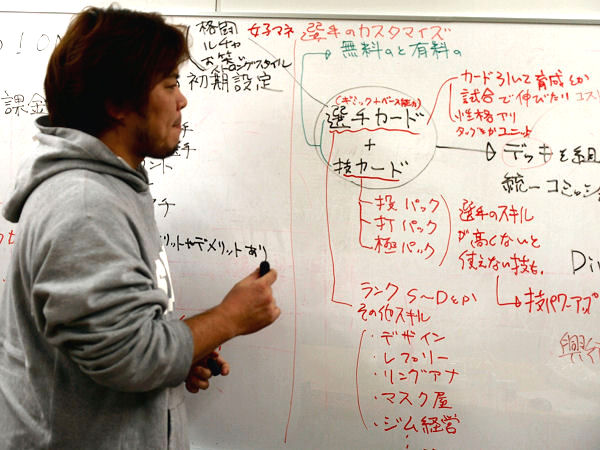 格闘
ルチャ
お笑
ストロングスタイル
初期設定
女子マネ
課金
選手のカスタマイズ
無料のと有料の
(ギミック+ベース能力)
選手カード
+
技カード
カード引いて育成とか
試合で伸びたり
性格アリ
タッグとかユニット
デッキを組
統一コミッショ
投パック
打パック
極パック
選手のスキル
が高くないと
使えない技も。
技パワーアップ
ランク S〜Dとか
その他スキル
・デザイン
・レフェリー
・リングアナ
・マスク屋
・ジム経営
リットやデメリットあり
Di
興行